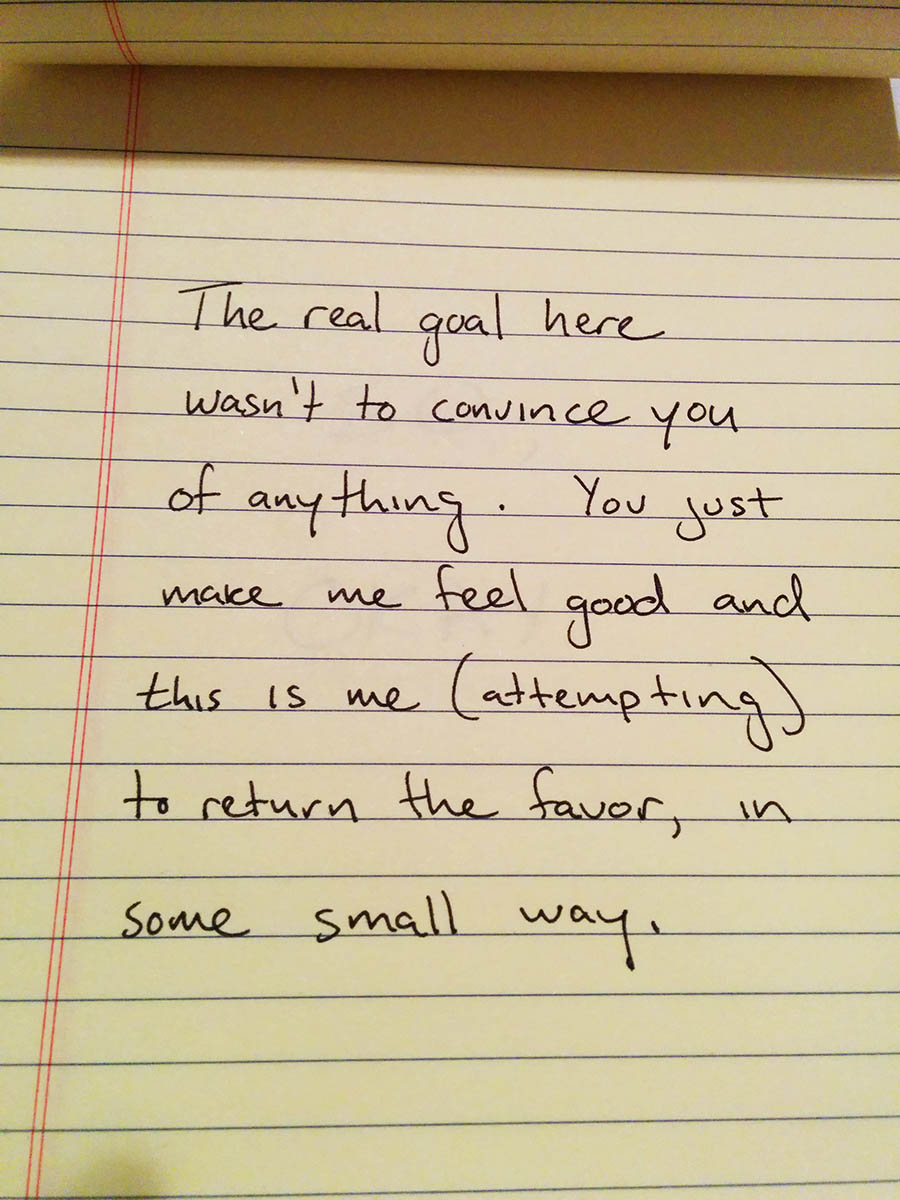 The real goal here
wasn't to convince you
of anything. You just
make me feel good and
this is me (attempting)
to return the favor, in
some small way.